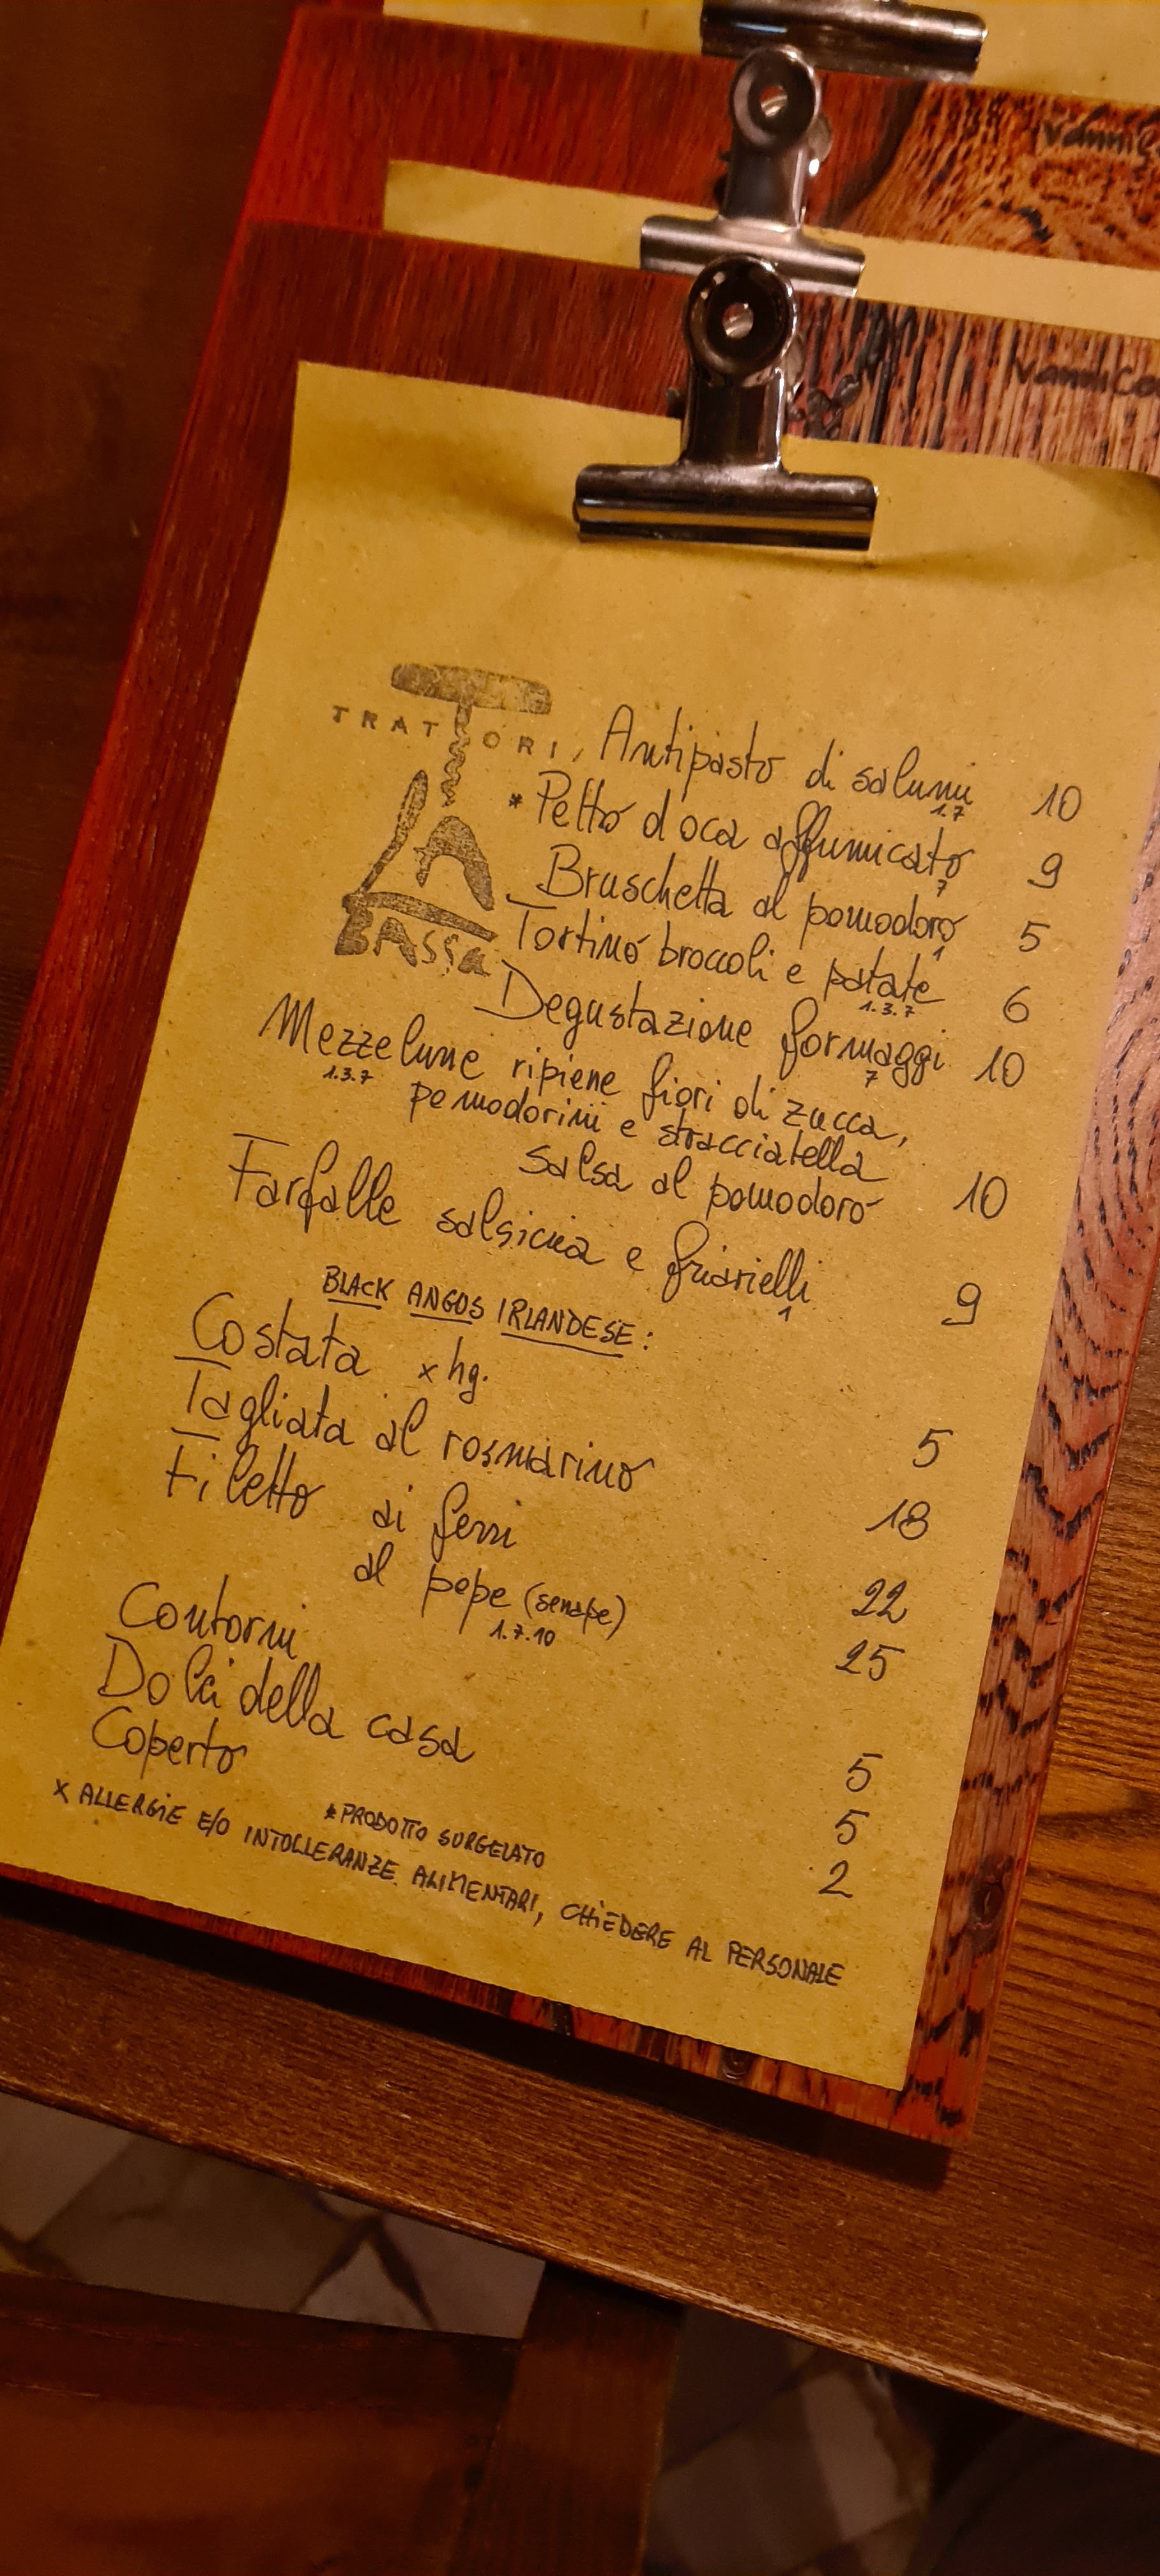 Vanni
Vanni
TRATTORI
LA
BASSA
Antipasto di salumi 10
1.7
* Petto d'oca affumicato 9
7
Bruschetta al pomodoro 5
1
Tortino broccoli e patate 6
1.3.7
Degustazione formaggi 10
7
Mezzelune ripiene fiori di zucca,
1.3.7
pomodorini e stracciatella
salsa al pomodoro 10
Farfalle salsiccia e friarielli 9
1
BLACK ANGUS IRLANDESE:
Costata x hg. 5
Tagliata al rosmarino 18
Filetto ai ferri 22
al pepe (senape) 25
1.7.10
Contorni 5
Dolci della casa 5
Coperto 2
* PRODOTTO SURGELATO
X ALLERGIE E/O INTOLLERANZE ALIMENTARI, CHIEDERE AL PERSONALE